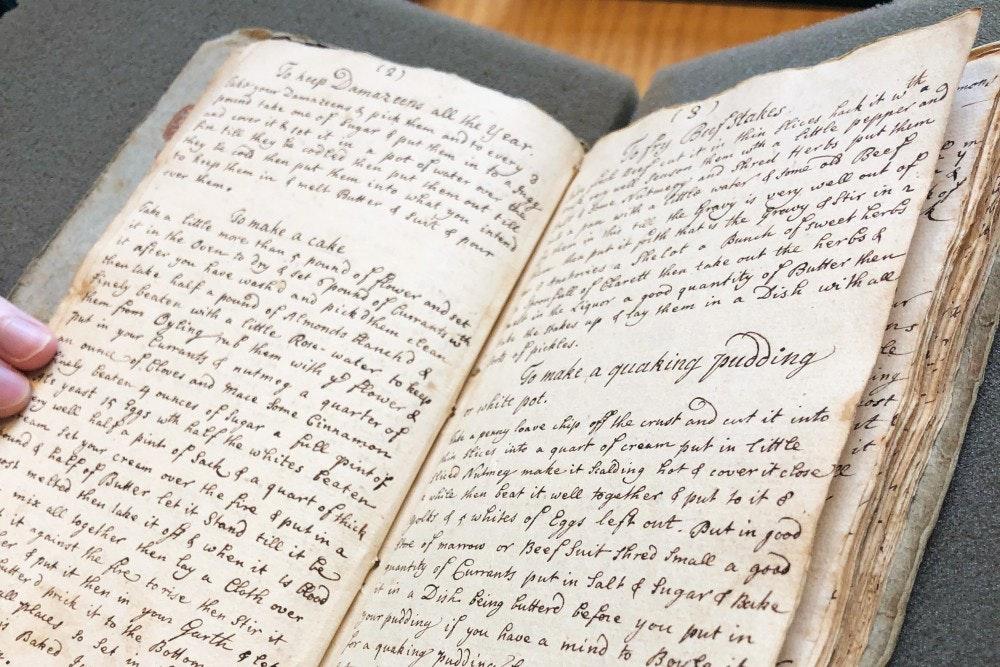 (2)
To keep Damazeens all the Year.
Take your Damazeens & pick them and to every
pound take one of Sugar & put them in to a Jugg
and cover it & set it in a pot of water over the
fire till they be codled then put them out till
they be cold then put them into what you intend
to keep them in & melt Butter & Suit & pour
over them.
To make a cake
Take a little more than 5 pound of flower and set
it in the Oven to dry & set 6 pound of Currants wth
it after you have wash'd and pick'd them clean
then take half a pound of Almonds blanch'd &
finely beaten with a little Rose water to keep
them from Oyling rub them with ye flower &
put in your Currants & nutmeg a quarter of
an ounce of Cloves and Mace Some Cinnamon
finely beaten 4 ounces of Sugar a full pint of
Ale yeast 15 Eggs wth half the whites beaten
very well half a pint of Sack & a quart of thick
Cream Set your cream over the fire & put in a
pound & half of Butter let it Stand till it be
most melted then take it off & when it is blood
mix all together then lay a Cloth over
it against the fire to rise then Stir it
& put it then in your Garth & let
butter'd prick it to the Bottom
all places So Set in
Baked
(3)
To fry Beef Stakes.
cut it in thin Slices hack it wth a
well Season them with a little pepper and
Nutmeg and Shred Herbs put them
a pan with a little water & Some old Beef
them in this till the Gravy is very well out of
put it with that is the Gravy & Stir in 2
Anchovies a Shelot a Bunch of Sweet herbs
full of Clarett then take out the herbs &
in the Liquor a good quantity of Butter then
the Stakes up & lay them in a Dish with all
of pickles.
To make a quaking pudding
or white pot.
Take a penny loave chip off the crust and cut it into
thin Slices into a quart of cream put in little
Sliced Nutmeg make it Scalding hot & cover it close
a while then beat it well together & put to it 8
yolks & 5 whites of Eggs left out. But in good
of marrow or Beef Suit Shred Small a good
quantity of Currants put in Salt & Sugar & Bake
it in a Dish being butterd before you put in
your pudding if you have a mind to Boyle it
for a quaking pudding